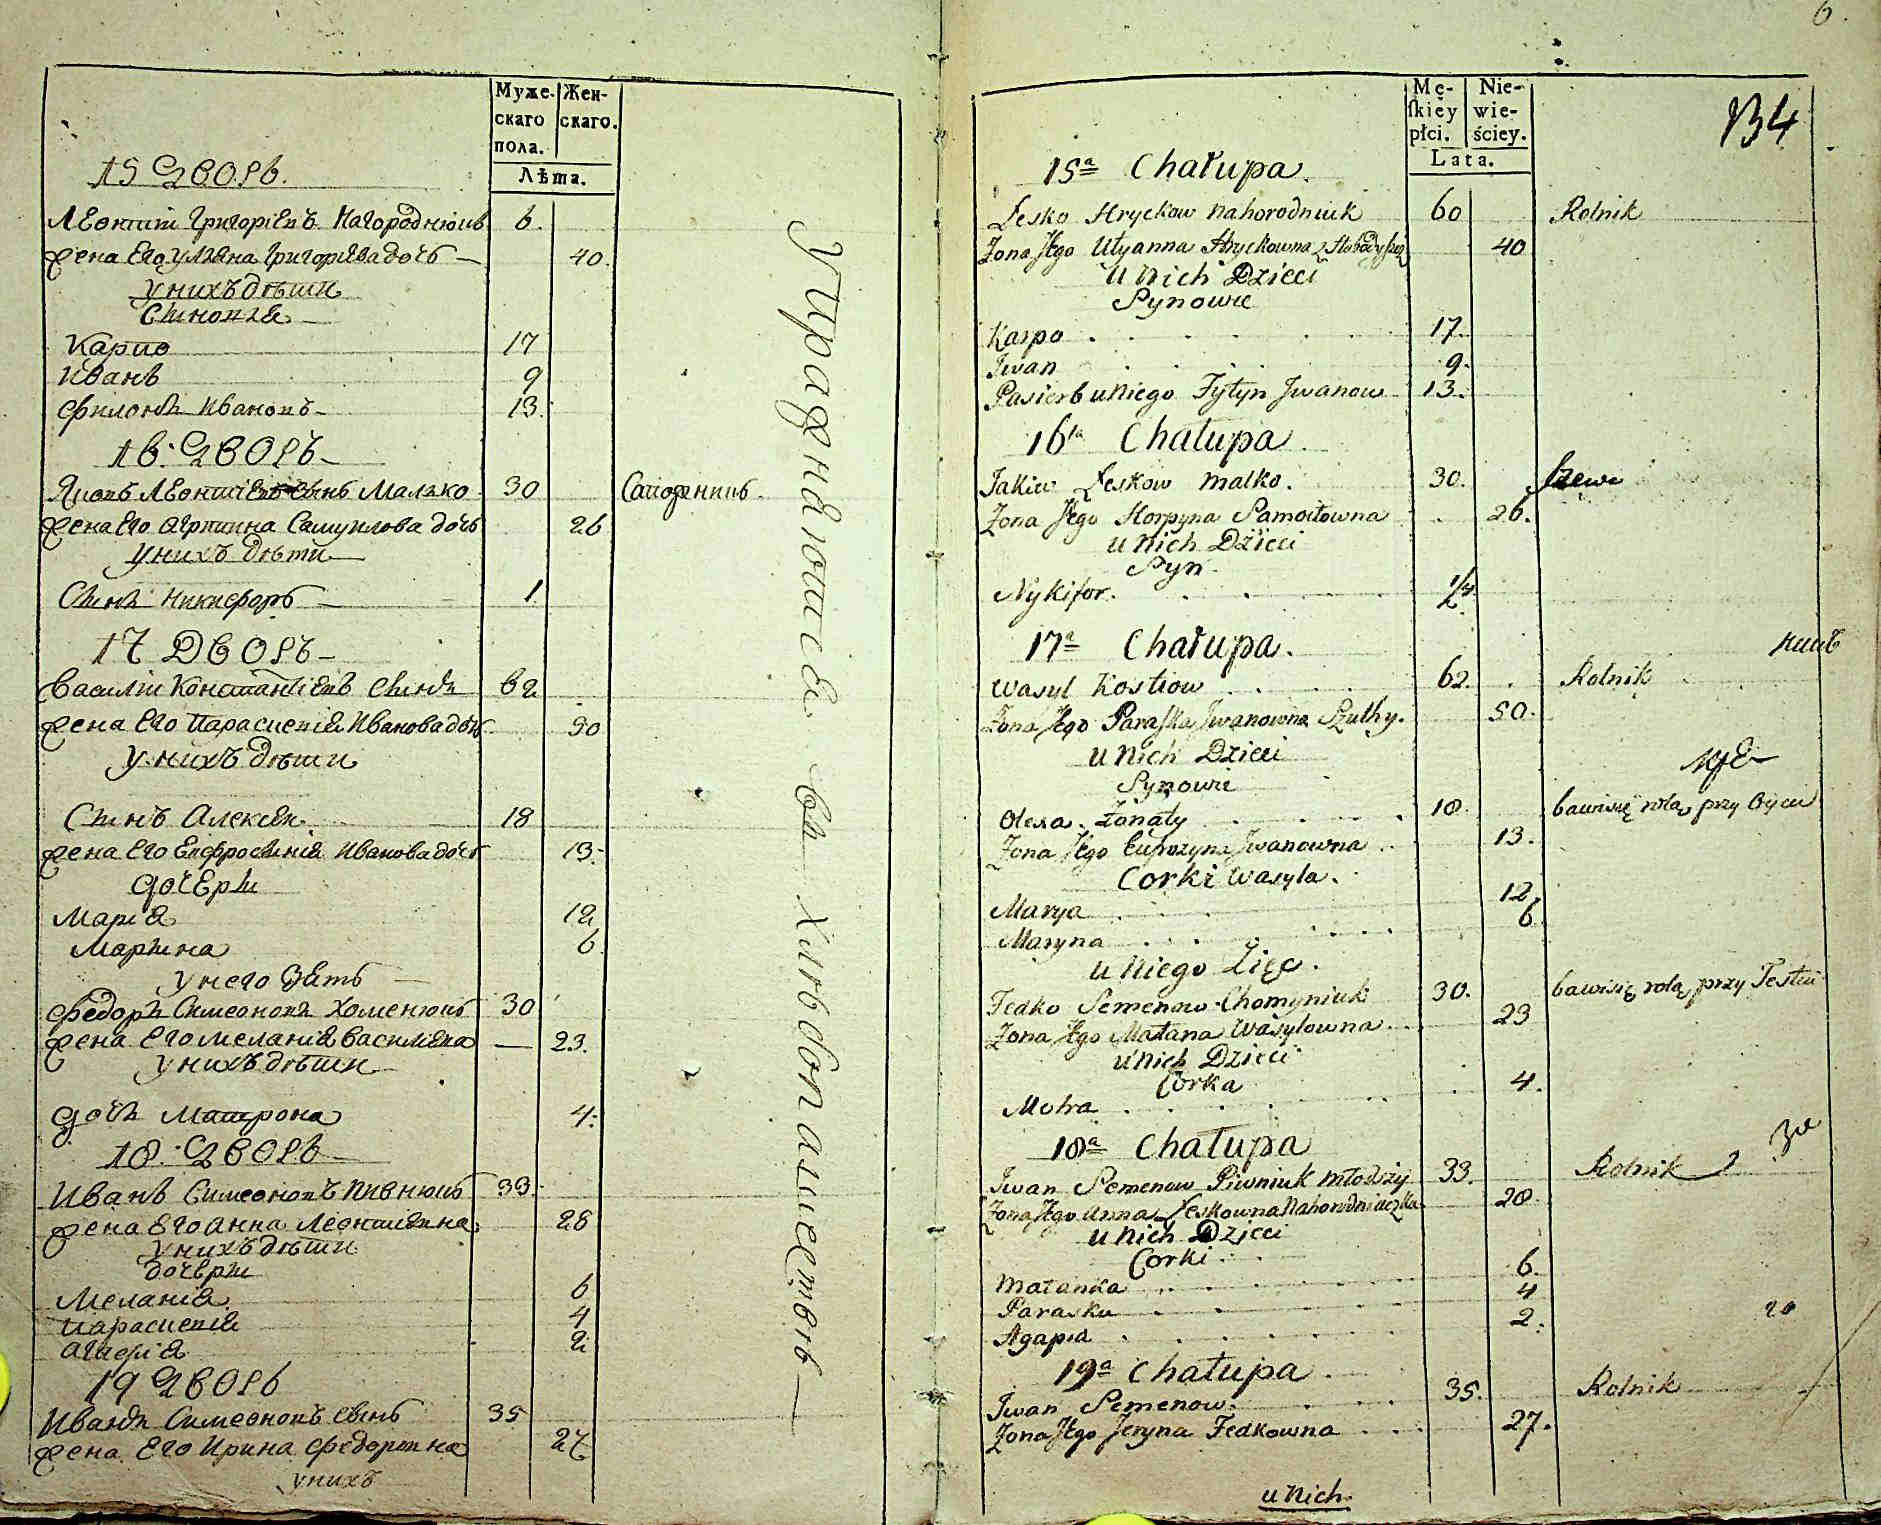 Муже-
скаго
пола.
Жен-
скаго.
Лѣта.
15 Дворъ.
Леонтій Григоріевъ Нагороднюкъ 6.
жена Его Уліяна Григоріева дочь 40.
у нихъ дѣти
Сыновья
Карпо 17
Иванъ 9
Филонъ Ивановъ 13.
16. Дворъ
Яковъ Леонтіевъ сынъ Малко 30 Сапожникъ.
жена Его Агрипина Самуилова дочь 26
у нихъ дѣти
Сынъ Никифоръ 1.
17 Дворъ
Василій Константіевъ Сынъ 62
жена Его Параскевія Иванова дочь 50
у нихъ дѣти
Сынъ Алексѣй 18
жена Его Евфросинія Иванова дочь 13.
Дочери
Марія 12
Марина 6
у него Зять
Федоръ Симеоновъ Хоменюкъ 30
жена Его Меланія Васильева 23.
у нихъ дѣти
Дочь Матрона 4.
18. Дворъ
Иванъ Симеоновъ Пивнюкъ 33.
жена Его Анна Леонтіевна 28
у нихъ дѣти
дочери
Меланія 6
Параскевія 4
Агафія 2
19 Дворъ
Иванъ Симеоновъ сынъ 35
жена Его Ирина Федоровна 27
у нихъ
Упражняются въ хлѣбопашествѣ
6.
Mę-
ſkiey
płci.
Nie-
wie-
ściey.
Lata.
134
15a Chałupa.
Lesko Hryckow Nahorodniuk 60 Rolnik
Zona Jego Ulyanna Hryckowna 40
u Nich Dzieci
Synowie
Karpo 17.
Jwan 9.
Pasierb u Niego Fyłyn Jwanow 13.
16ta Chałupa
Jakiw Leskow Malko. 30. Szewc
Zona Jego Horpyna Samoiłowna 26.
u Nich Dzieci
Syn
Nykifor. 1/2
17a Chałupa.
Wasyl Kostiow 62. Rolnik
Zona Jego Paraska Jwanowna 50.
u Nich Dzieci
Synowie
Olexa Zonaty 18. bawi się rolą przy Oycu
Zona Jego Euprozyna Jwanowna 13.
Corki Wasyla.
Marya 12
Maryna 6.
u Niego Zięć.
Fedko Semenow Chomyniuk 30. bawi się rolą przy Testiu
Zona Jego Małana Wasylowna 23
u Nich Dzieci
Corka
Motra 4.
18a Chałupa
Jwan Semenow Piwniuk młodszy 33. Rolnik
Zona Jego Anna Leskowna Nahorodniaczka 28
u Nich Dzieci
Corki
Małanka 6.
Paraska 4
Agapia 2.
19a Chałupa
Jwan Semenow. 35. Rolnik
Zona Jego Jeryna Fedkowna 27.
u Nich.